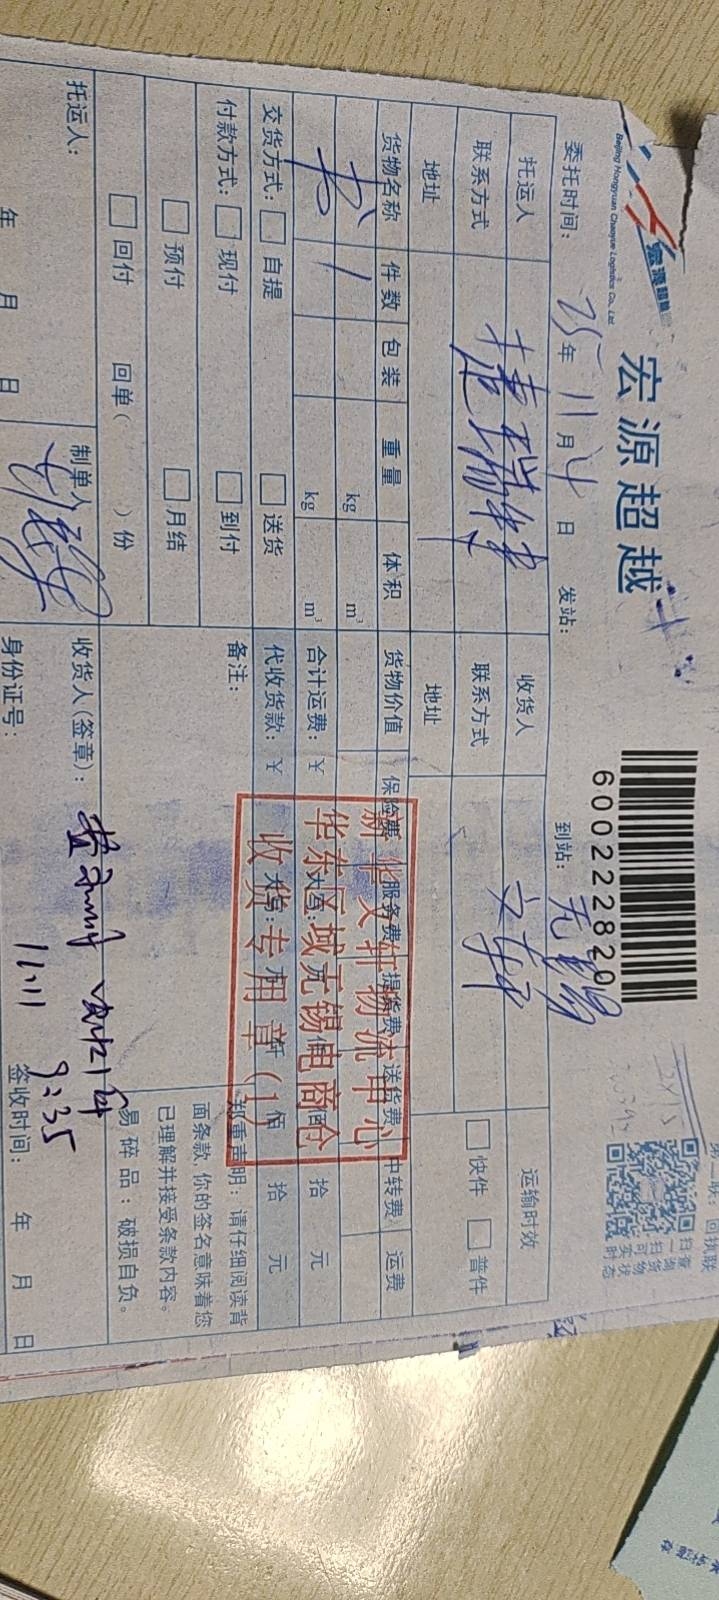 宏源超越
Beijing Hongyuan Chaoyue Logistics Co., Ltd.
6000222820
第二联：回执联
扫一扫可实时
查询货物状态
委托时间： 25 年 11 月 日 发站： 到站：无锡
托运人 收货人 文轩 运输时效
联系方式 联系方式 快件 普件
地址 地址
货物名称 件数 包装 重量 体积 货物价值 保险费 服务费 提货费 送货费 中转费 运费
书 1 kg m³
kg m³ 合计运费：￥ 拾 元
交货方式： 自提 送货 代收货款：￥ 佰 拾 元
付款方式： 现付 到付 备注：
预付 月结
回付 回单（ ）份
新华文轩物流中心
华东区域无锡电商仓
收货专用章(1)
郑重声明：请仔细阅读背
面条款,你的签名意味着您
已理解并接受条款内容。
易碎品：破损自负。
托运人： 制单人 收货人(签章)：
11.11 9:35
年 月 日 身份证号： 签收时间： 年 月 日